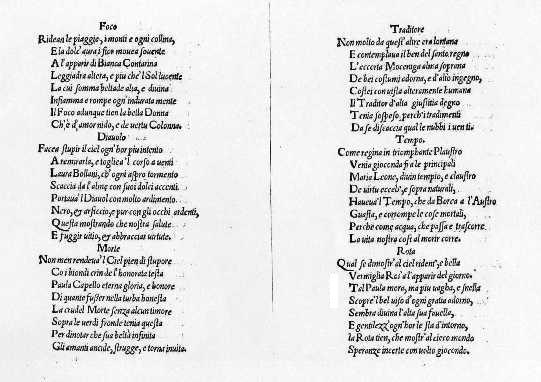 Foco
Ridean le piaggie, i monti e ogni collina,
E la dolc'aura i fior movea sovente
A l'apparir di Bianca Contarina
Leggiadra altera, e piu che'l Sol lucente
La cui somma beltade alta, e divina
Infiamma e rompe ogn'indurata mente
Il Foco adunque tien la bella Donna
Ch'è d'amor nido, e de vertu Colonna.
Diavolo
Facea stupir il ciel ogn'hor piu intento
A remirarla, e toglica'l corso a venti
Laura Bollani, ch'ogni aspro tormento
Scaccia da l'alme con suoi dolci accenti.
Portava'l Diavol con molto ardimento.
Nero, & arsiccio, e pur con gli occhi ardenti,
Questa mostrando che nostra salute
E fuggir vitio, & abbracciar virtute.
Morte
Non men rendeva'l Ciel pien di stupore
Co i biondi crin de l'honorate testa
Paula Capello eterna gloria, e honore
Di quante fusser nella turba honesta
La crudel Morte senza alcun timore
Sopra le verdi fronde tenia questa
Per dinotar che sua beltà infinita
Gli amanti ancide, strugge, e torna in vita.
Traditore
Non molto da quest'altre era lontana
E contemplava il ben del santo regno
L'eccerta Moceniga alma soprana
De bei costumi adorna, e d'alto ingegno,
Costei con vista alteramente humana
Il Traditor d'alta giustitia degno
Tenia sospeso, perch'i tradimenti
Da se discaccia qual le nubbi i venti
Tempo.
Come regina in triomphante Plaustro
Venia gioconda fra le principali
Maria Leone, divin tempio, e claustro
De virtu eccelse, e sopra naturali,
Haveva'l Tempo, che da Borea a l'Austro
Guasta, e corrompe le cose mortali,
Perche come acqua, che passa e trascorre
La vita nostra così al morir corre.
Rota
Qual se dimostr'al ciel ridente, e bella
Vermiglia Rosa l'apparir del giorno.
Tal Paula mora, ma piu vagha, e snella
Scopre'l bel viso d'ogni gratia adorno,
Sembra divina l'alta sua favella,
E gentilezz'ogn'hor le sta d'intorno,
la Rota tien, che mostr'al cieco mondo
Speranze incerte con volto giocondo.